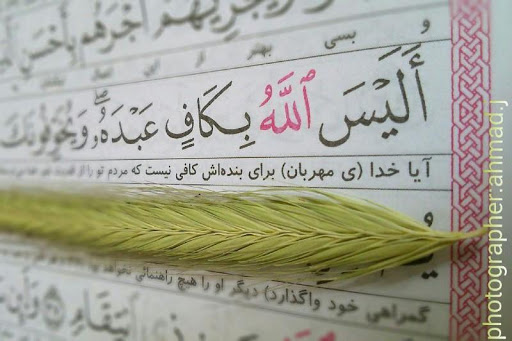 وَيَجْزِيَهُمْ أَجْرَهُم بِأَحْسَنِ
و بسی بهتر از این
أَلَيْسَ ٱللَّهُ بِكَافٍ عَبْدَهُۥ ۖ وَيُخَوِّفُونَكَ
آیا خدا (ی مهربان) برای بنده‌اش کافی نیست که مردم تو را از
گمراهی خود واگذارد) دیگر او را هیچ راهنمائی نخواهد
photographer:ahmad.j